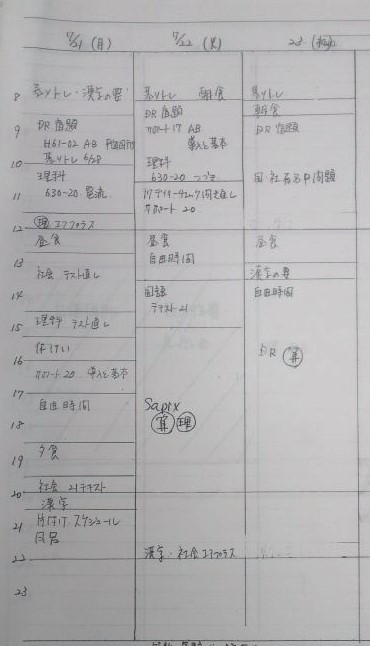 7/21 (月)
7/22 (火)
23 (水)
8
基礎トレ・漢字の要
基礎トレ 朝食
基礎トレ
朝食
9
DR 宿題
H61-02 AB
基礎トレ 6/28
DR 宿題
サポート17 AB
導入と基本
DR 宿題
10
理科
630-20 電流
理科
630-20 つづき
国・社 有名中問題
11
デイリーチェック 直し
サポート 20
12
理 エフプラス
昼食
昼食
自由時間
昼食
13
社会 テスト直し
漢字の要
14
国語
テキスト21
自由時間
15
理科 テスト直し
16
休けい
サポート20 導入と基本
DR 算
17
自由時間
Sapix
18
算 理
19
夕食
20
社会 21テキスト
漢字
21
片付け スケジュール
風呂
22
漢字・社会 エフプラス
23